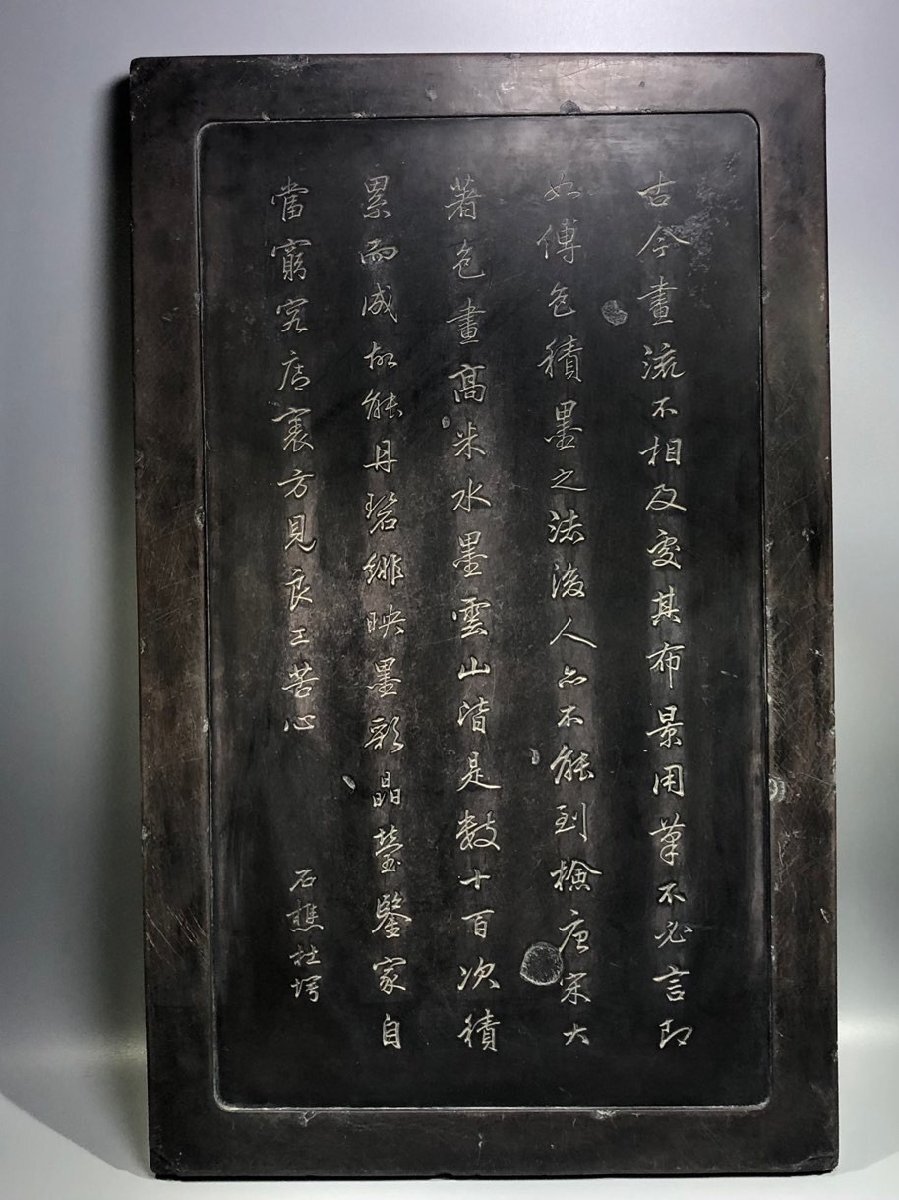 古今畫流不相及處其布景用筆不必言即
如傅色積墨之法後人亦不能到檢唐宋大
著色畫高米水墨雲山皆是數十百次積
累而成故能丹碧緋映墨彩晶瑩鑒家自
當窮究底裏方見良工苦心
石樵杜堮